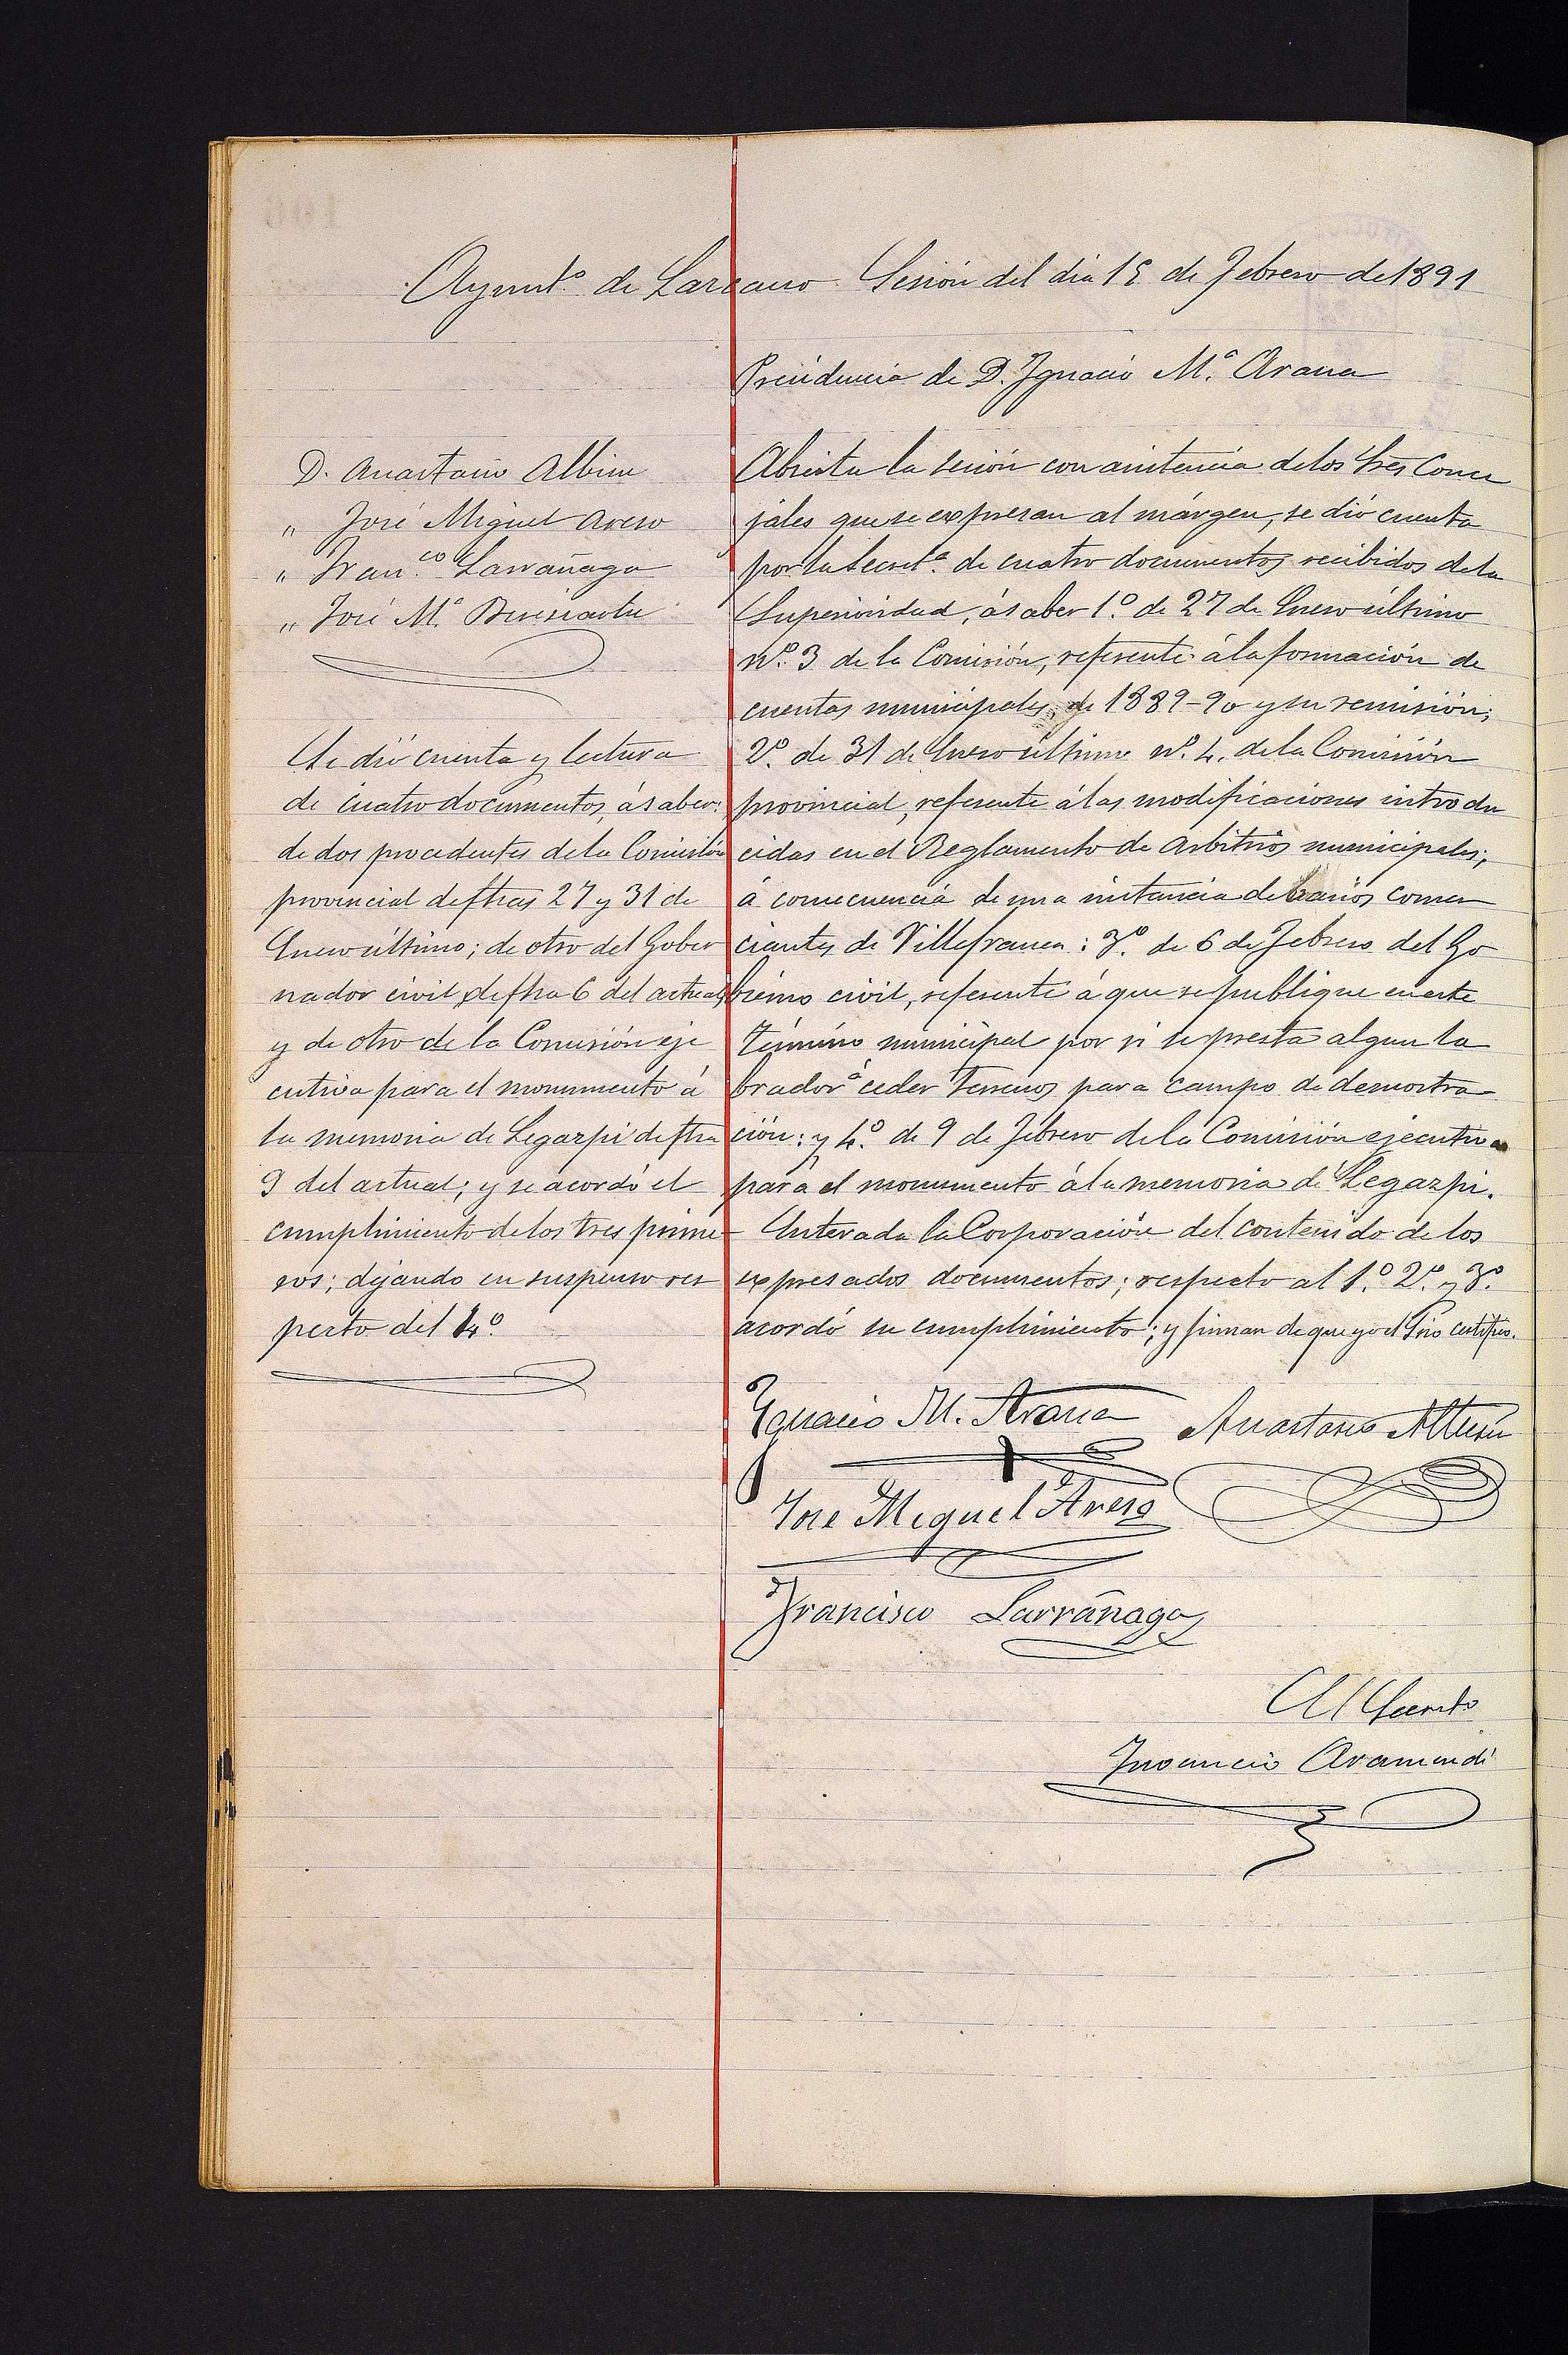 Ayunt.º de Lazcano Sesión del dia 15 de Febrero de 1891
Presidencia de D. Ignacio M.ª Arana
D. Anastasio Albisu
" José Miguel Areso
" Fran.co Larrañaga
" José M.ª
Se dió cuenta y lectura
de cuatro documentos, á saber:
de dos procedentes de la Comisión
provincial de fhas 27 y 31 de
Enero último; de otro del Gober
nador civil, de fha 6 del actual;
y de otro de la Comisión eje
cutiva para el monumento á
la memoria de Legazpi de fha
9 del actual; y se acordó el
cumplimiento de los tres prime-
ros; dejando en suspenso res
pecto del 4º.
Abierta la sesión con asistencia de los Sres Conce
jales que se expresan al márgen, se dió cuenta
por la Secret.ª de cuatro documentos recibidos de la
Superioridad, á saber 1.º de 27 de Enero último
nº. 3 de la Comisión, referente á la formación de
cuentas municipales de 1889-90 y su remisión;
2º. de 31 de Enero último nº. 4. de la Comisión
provincial, referente á las modificaciones introdu
cidas en el Reglamento de Arbitrios municipales;
á consecuencia de una instancia de varios comer
ciantes de Villafranca: 3º. de 6 de Febrero del Go
bierno civil, referente á que se publique en este
término municipal por si se presta algun la
brador á ceder terrenos para campo de demostra
ción: y 4.º de 9 de Febrero de la Comisión ejecutiva
para el monumento á la memoria de Legazpi.
Enterada la Corporación del contenido de los
expresados documentos; respecto al 1.º 2º. y 3º.
acordó su cumplimiento; y firman de que yo el Srio certifico.
Ignacio M. Arana Anastasio Albisu
José Miguel Areso
Francisco Larrañaga
El Secret.º
Inocencio Aramendi